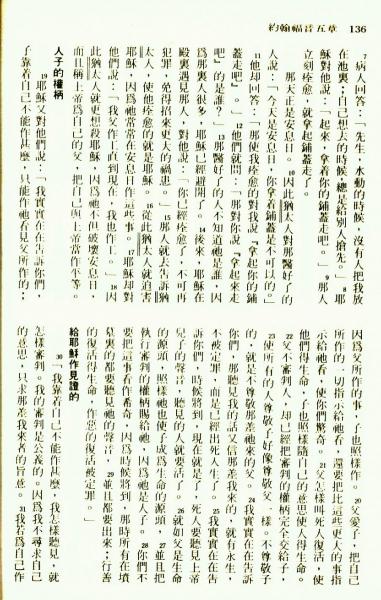 約翰福音五章 136
7病人回答:「先生,水動的時候,沒有人把我放
在池裏;自己想去的時候,總是給別人搶先。」8耶
穌對他說:「起來,拿着你的鋪蓋走吧。」9那人
立刻痊愈,就拿起鋪蓋走了。
那天正是安息日。10因此猶太人對那醫好了的
人說:「今天是安息日,你拿着鋪蓋是不可以的。」
11他却回答:「那使我痊愈的對我說『拿起你的鋪
蓋走吧』。」12他們就問:「那對你說『拿起來走
吧』的是誰?」13那醫好了的人不知道祂是誰,因
爲那裏人很多,耶穌已經避開了。14後來,耶穌在
殿裏遇見那人,對他說:「你已經痊愈了,不可再
犯罪,免得招來更大的禍患。」15那人就去告訴猶
太人,使他痊愈的就是耶穌。16從此猶太人就迫害
耶穌,因爲祂常常在安息日作這些事。17耶穌却對
他們說:「我父作工直到現在,我也作工。」18因
此猶太人就更想殺耶穌,因爲祂不但破壞安息日,
而且稱上帝爲自己的父,把自己與上帝當作平等。
人子的權柄
19耶穌又對他們說:「我實實在在告訴你們,
子靠着自己不能作甚麼,只能作祂看見父所作的;
因爲父所作的事,子也照樣作。20父愛子,把自己
所作的一切指示給祂看,還要把比這些更大的事指
示給祂看,使你們驚奇。21父怎樣叫死人復活,使
他們得生命,子也照樣隨自己的意思使人得生命。
22父不審判人,却已經把審判的權柄完全交給子,
23使所有的人尊敬子好像尊敬父一樣。不尊敬子
的,就是不尊敬那差祂來的父。24我實實在在告訴
你們,那聽見我的話又信那差我來的,就有永生,
不被定罪,而是已經出死入生了。25我實實在在告
訴你們,時候將到,現在就是了,死人要聽見上帝
兒子的聲音,聽見的人就要活了。26就如父是生命
的源頭,照樣祂也使子成爲生命的源頭,27並且把
執行審判的權柄賜給祂,因爲祂是人子。28你們不
要把這事看作希奇,因爲時候將到,那時所有在墳
墓裏的都要聽見祂的聲音,29並且都要出來;行善
的復活得生命,作惡的復活被定罪。」
給耶穌作見證的
30「我靠着自己不能作甚麼,我怎樣聽見,就
怎樣審判。我的審判是公義的。因爲我不尋求自己
的意思,只求那差我來者的旨意。31我若爲自己作